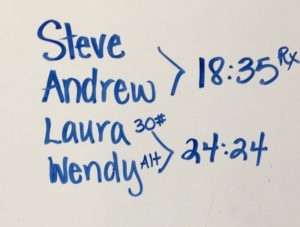 Steve
Andrew > 18:35 Rx
Laura 30#
Wendy Alt > 24:24